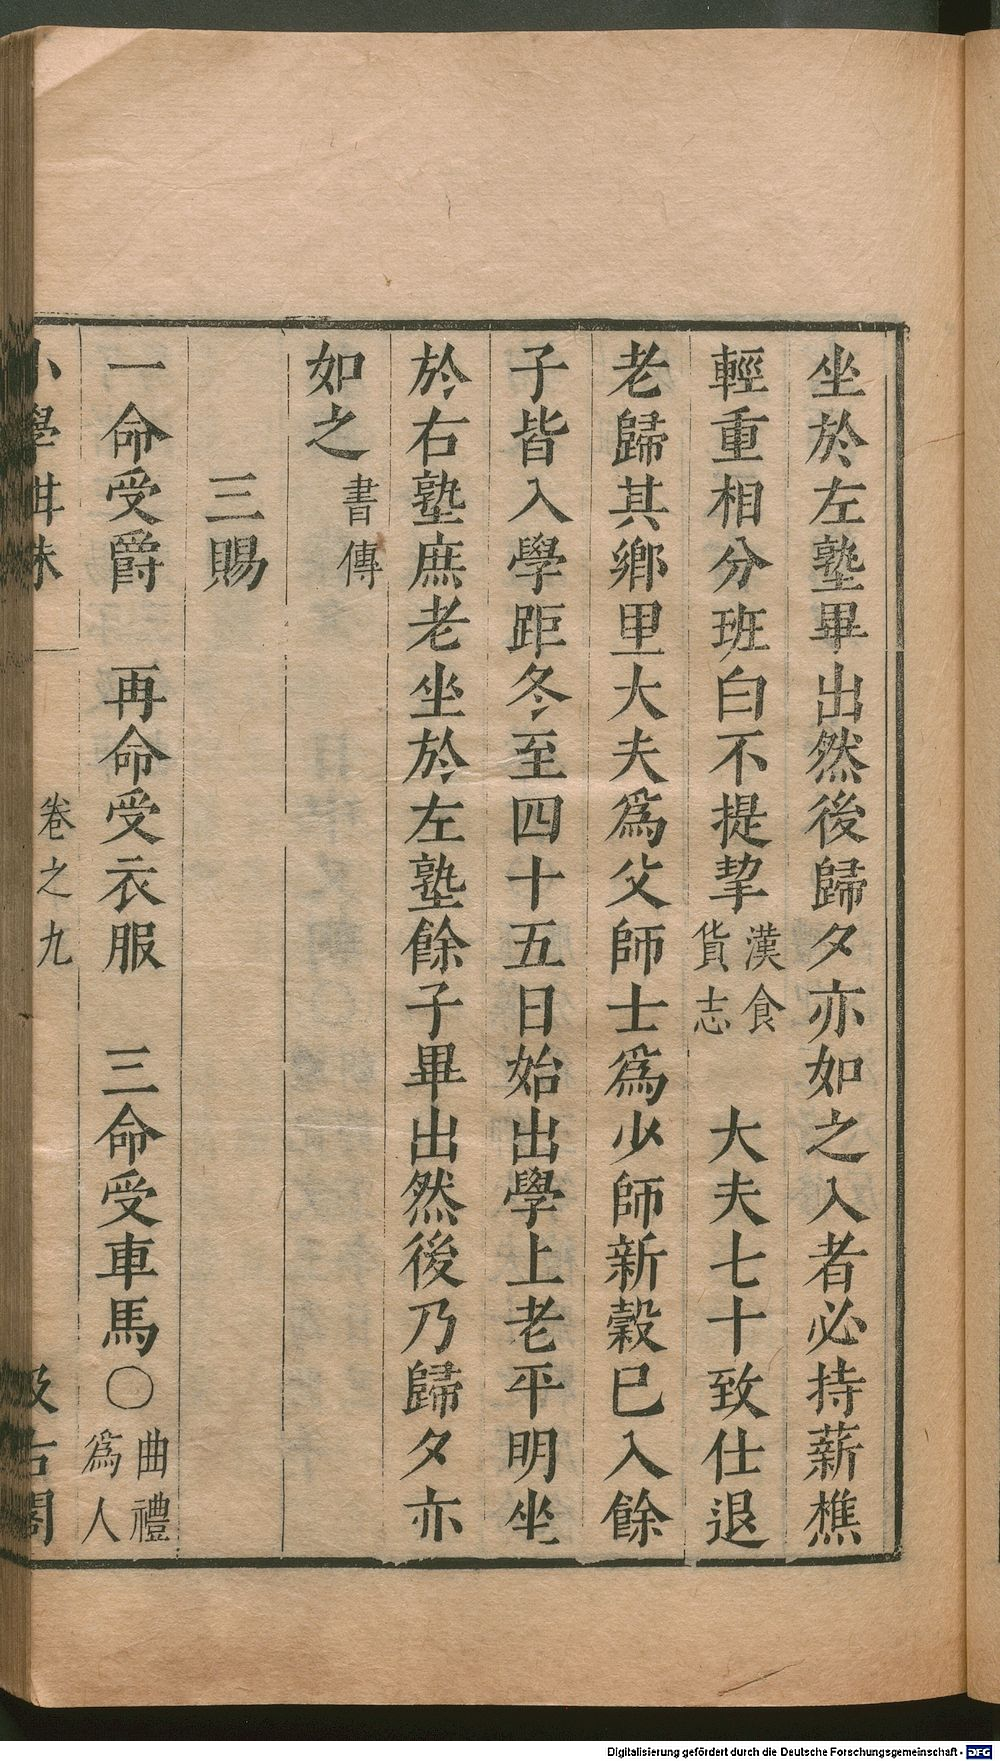 坐於左塾畢出然後歸夕亦如之入者必持薪樵
輕重相分班白不提挈漢食貨志　大夫七十致仕退
老歸其鄉里大夫爲父師士爲少師新穀已入餘
子皆入學距冬至四十五日始出學上老平明坐
於右塾庶老坐於左塾餘子畢出然後乃歸夕亦
如之書傳
三賜
一命受爵　再命受衣服　三命受車馬○曲禮爲人
小學紺珠　卷之九　汲古閣
Digitalisierung gefördert durch die Deutsche Forschungsgemeinschaft - DFG